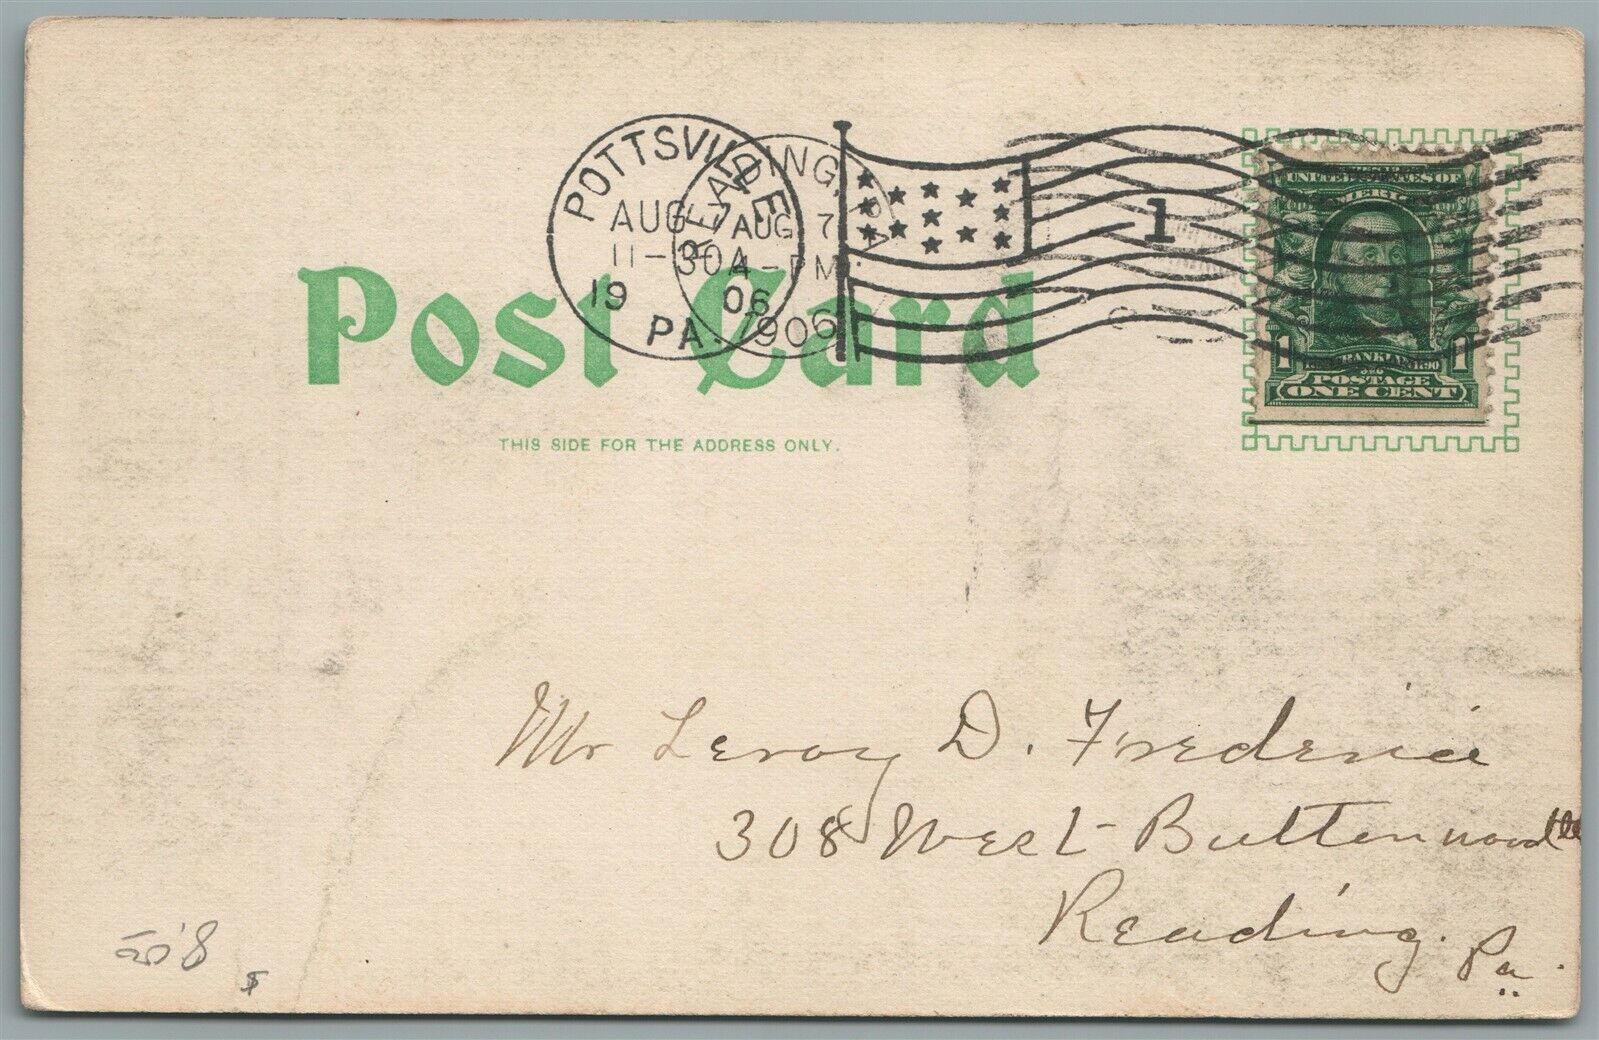 POTTSVILLE
AUG
11-30A
19 06
PA.
READING, PA.
AUG 7
4-PM
1906
1
UNITED STATES OF
AMERICA
FRANKLIN 1790
1 1
POSTAGE
ONE CENT
Post Card
THIS SIDE FOR THE ADDRESS ONLY.
Mr Leroy D. Frederici
308 West Buttonwood
Reading. Pa.